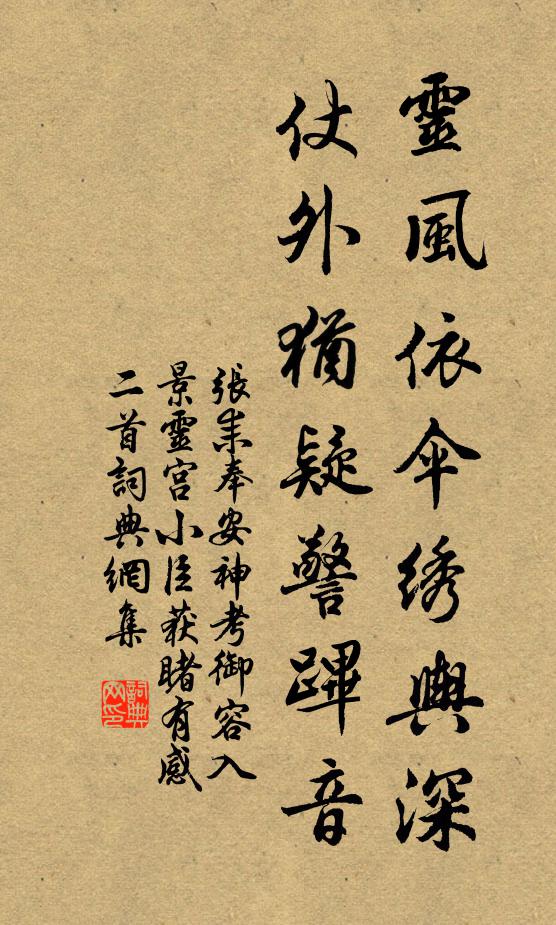 靈風依傘綉輿深
仗外猶疑警蹕音
張耒奉安神考御容入
景靈宮小臣获睹有感
二首詞典網集
詞典网印